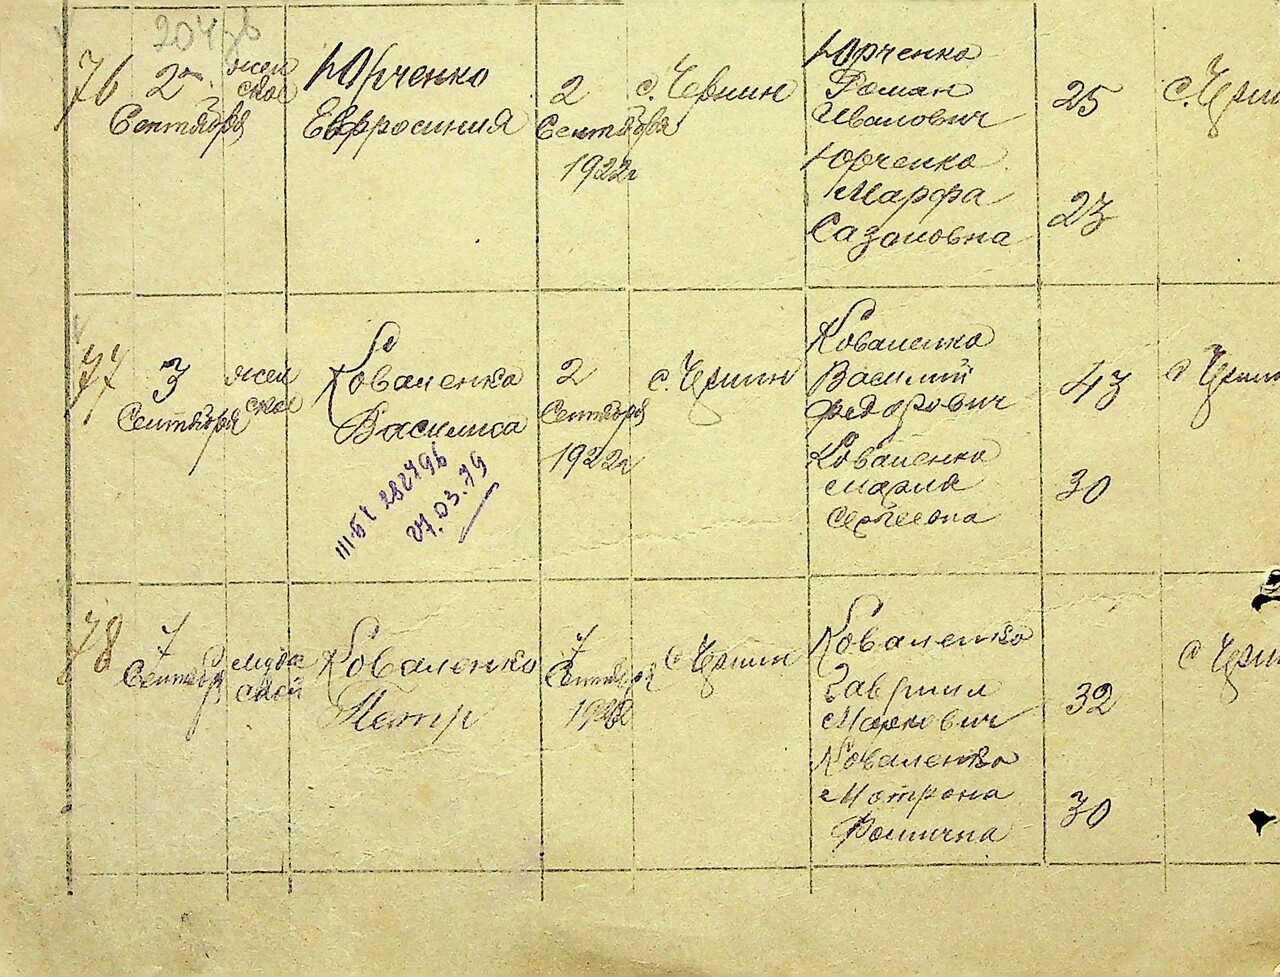 76
2
Сентября
жен
ское
Юрченко
Евфросиния
2
Сентября
1922г
с. Чернин
Юрченко
Роман
Иванович
Юрченко
Марфа
Сазоновна
25
23
77
3
Сентября
жен
ское
Коваленко
Василиса
27.03.79
2
Сентября
1922г
с. Чернин
Коваленко
Василий
Федорович
Коваленко
Мария
Сергеевна
43
30
78
7
Сентября
мужс
кой
Коваленко
Петр
7
Сентября
1922
с Чернин
Коваленко
Гавриил
Маркович
Коваленко
Мотрона
Фомична
32
30